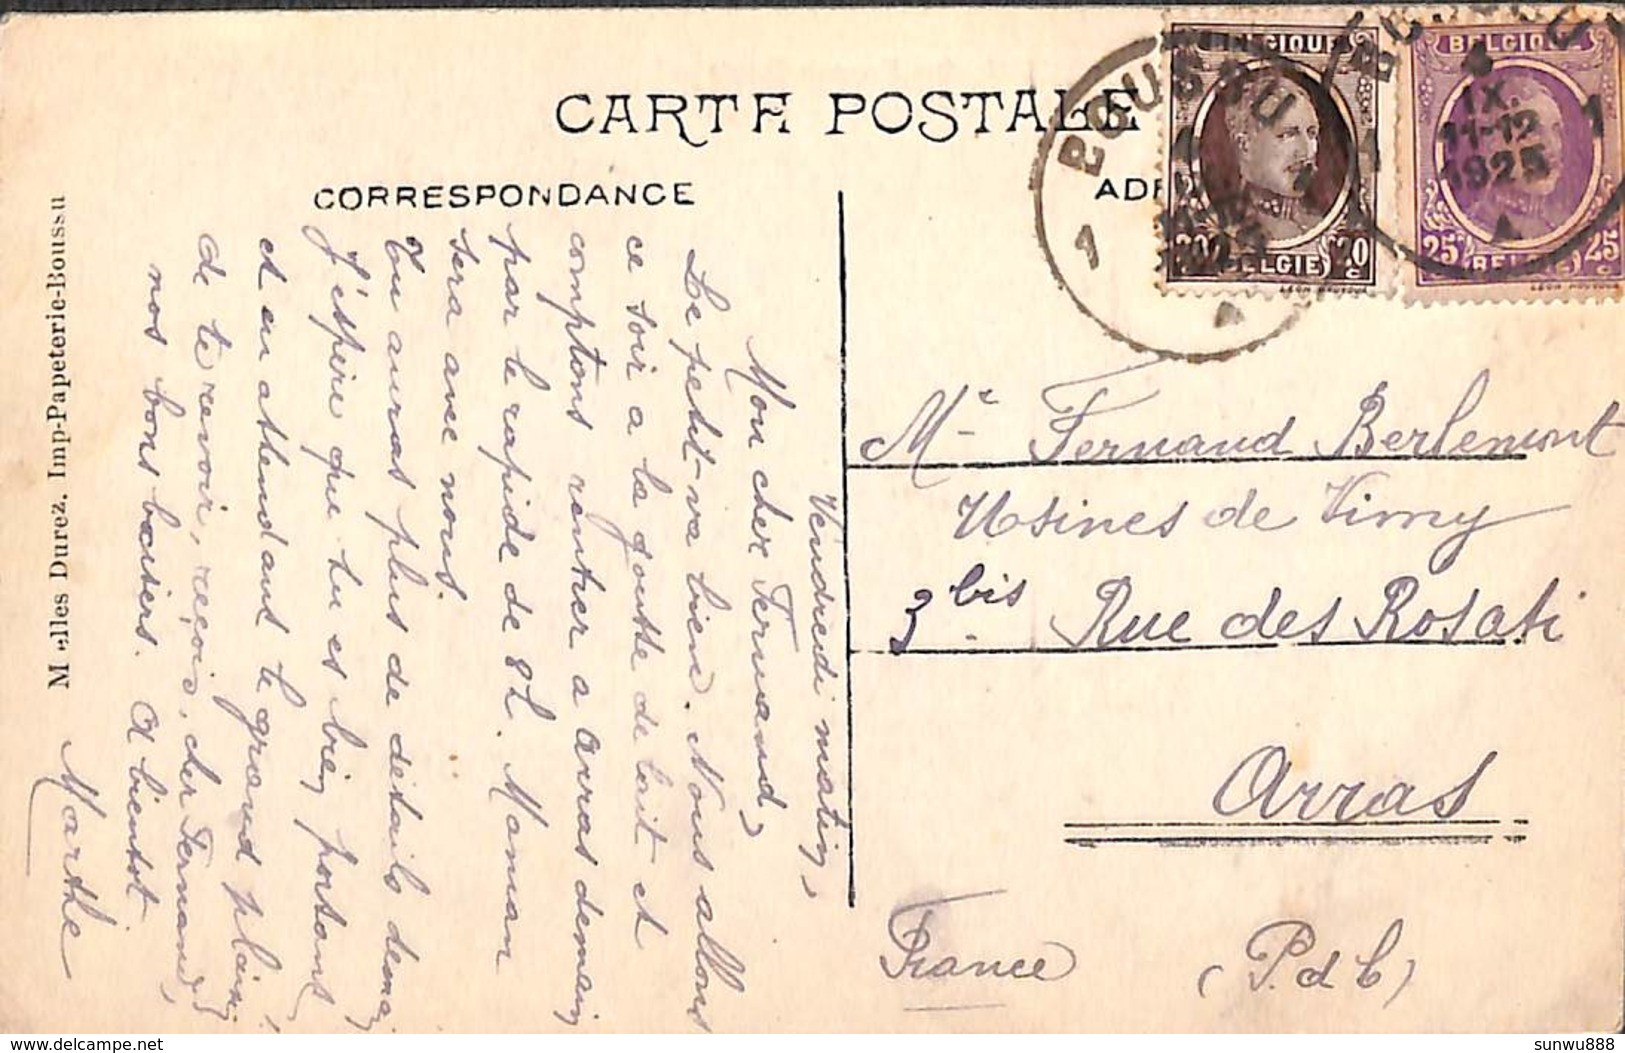 CARTE POSTALE
CORRESPONDANCE
Vendredi matin,
Mon cher Fernand,
Le petit va bien. Nous allons
ce soir a la goutte de lait et
comptons rentrer a Arras demain
par le rapide de 8h. Maman
sera avec nous.
Tu auras plus de details demain
J'espère que tu es bien portant
et en attendant le grand plaisir
de te revoir, reçois, cher Fernand,
nos bons baisers. A bientot
Marthe
Melles Durez. Imp-Papeterie-Boussu
BELGIQUE
20 BELGIE 20
BELGIQUE
25 BELGIE 25
BOUSSU
1 1
IX.
11-12
1925
Mr Fernand Berlemont
Usines de Vimy
3bis Rue des Rosati
Arras
France (P.d C)
sunwu888